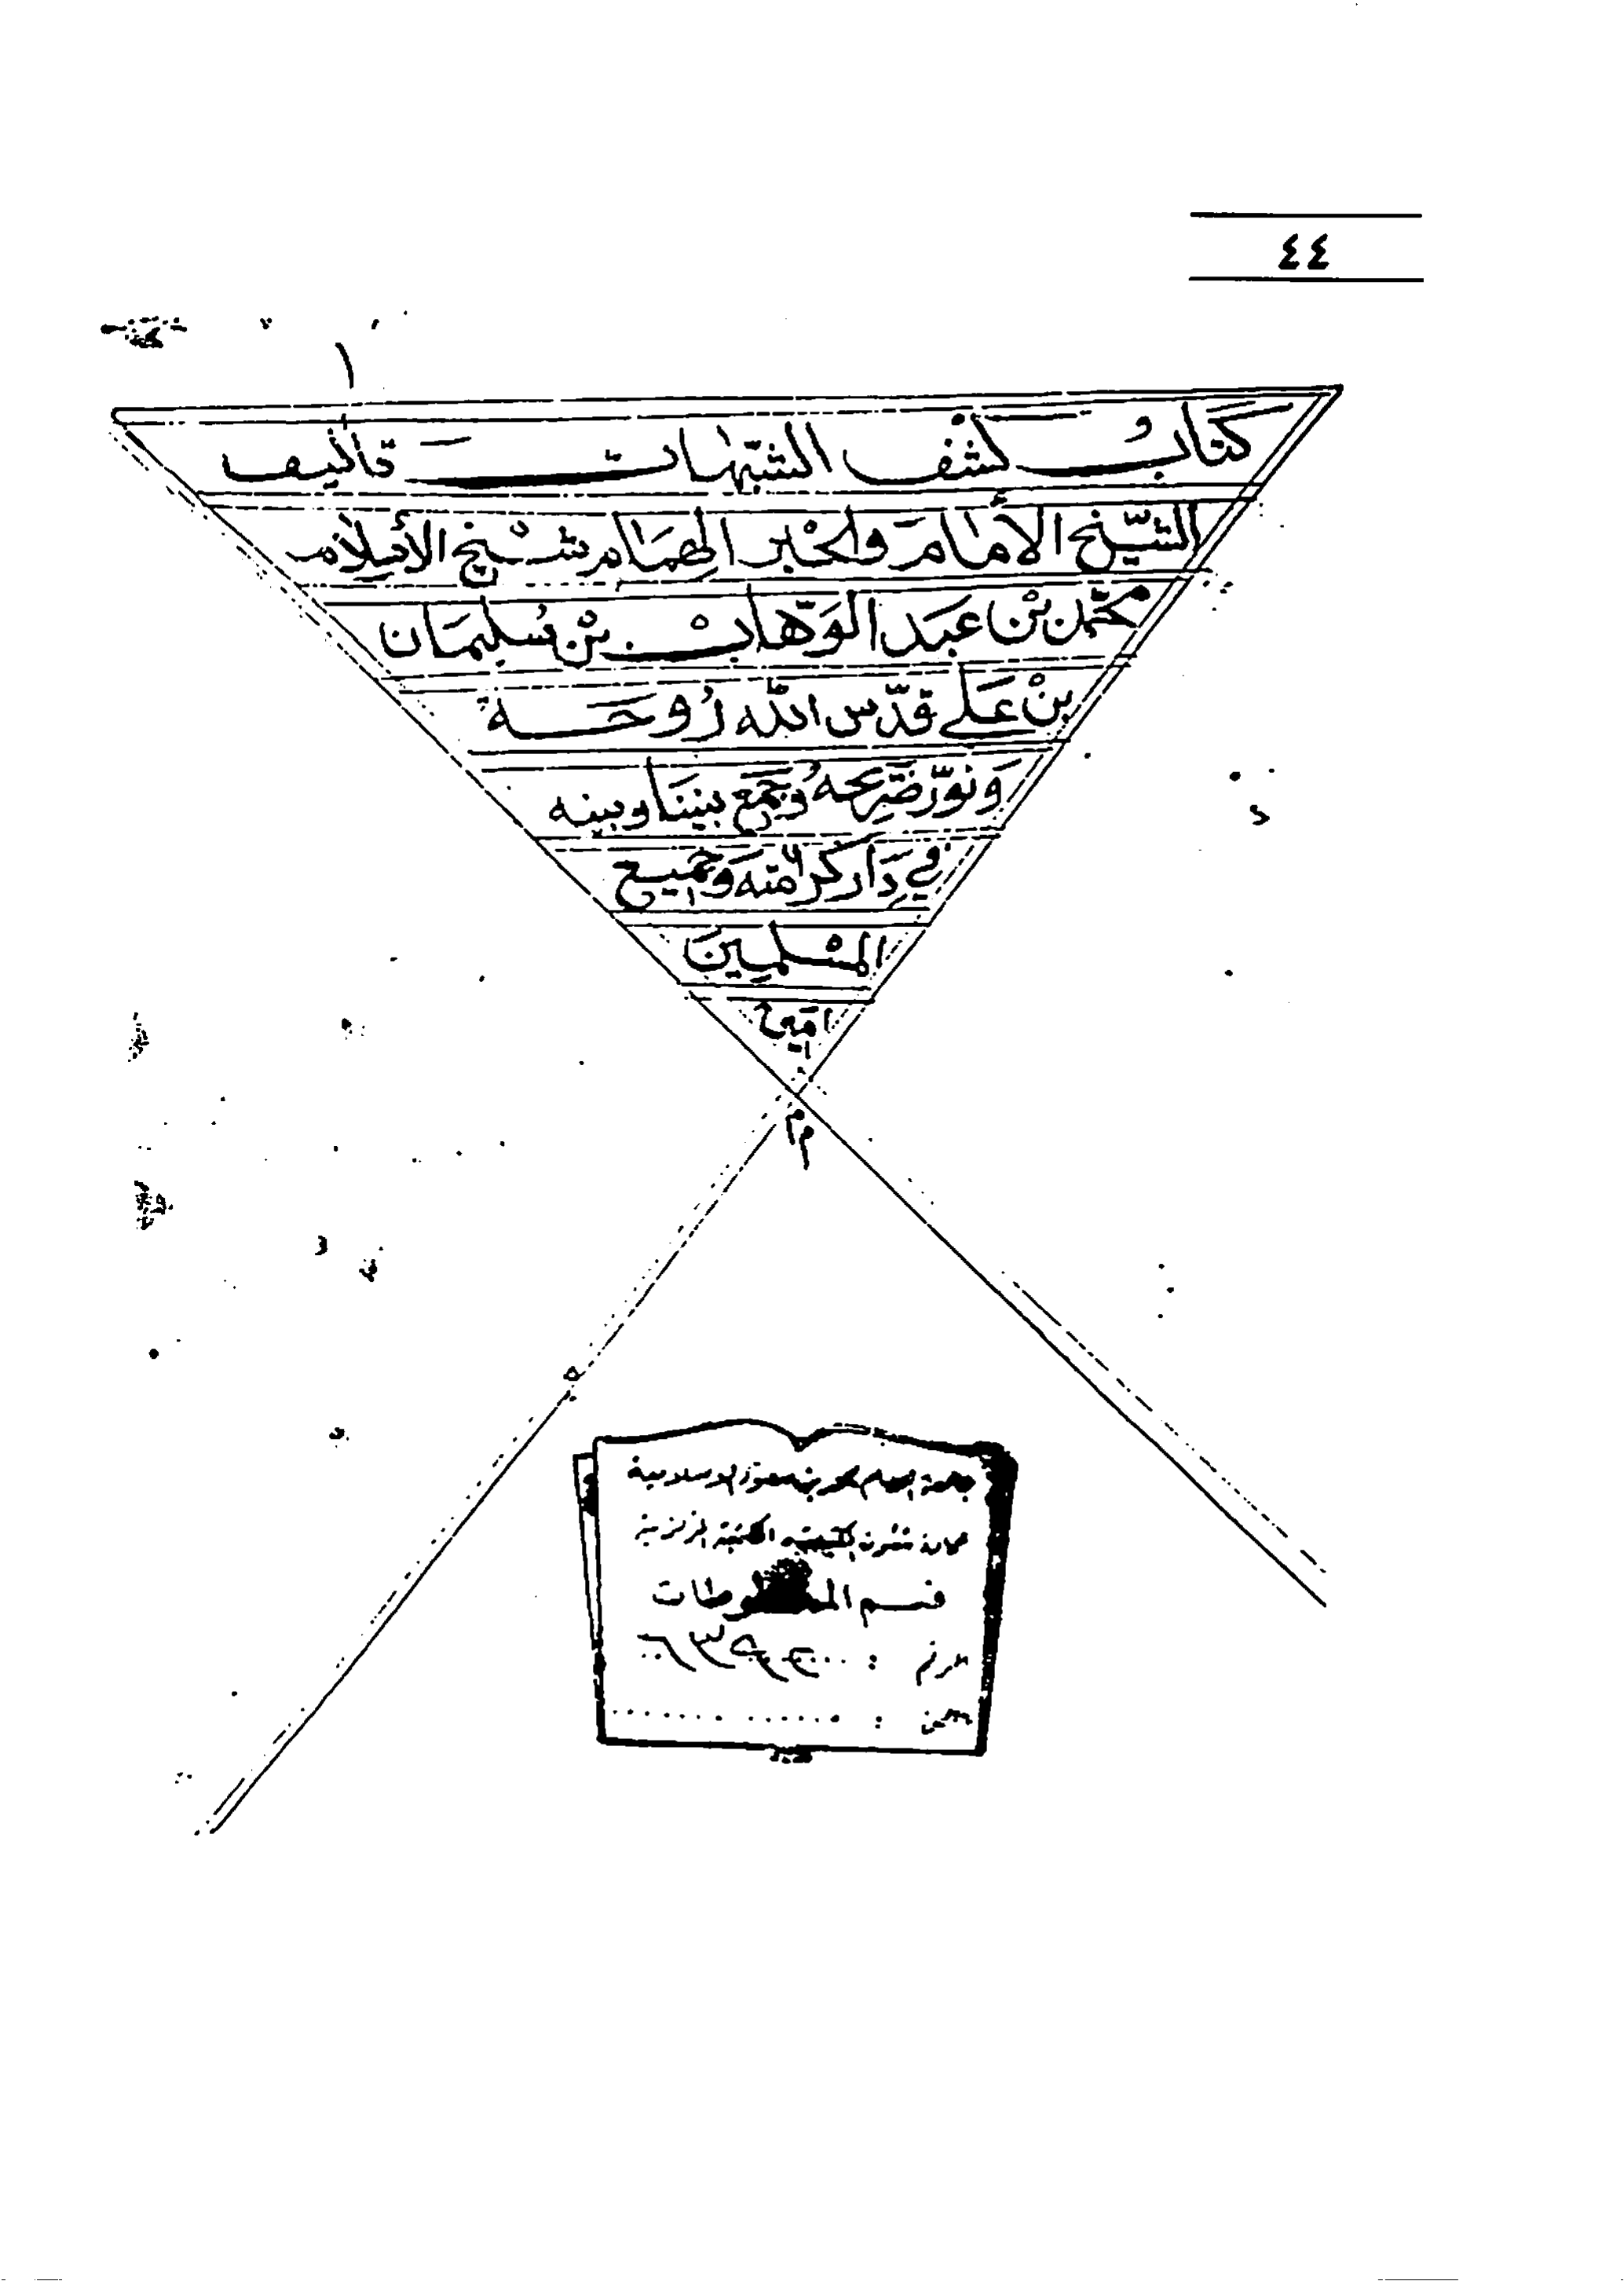 ٤٤
١
كتابُ كشف الشبهات تأليف
الشيخ الإمام والحبر الهمام شيخ الأسلام
محمد بن عبد الوهاب بن سليمان
بن علي قدس الله روحه
ونور ضريحه وجمع بيننا وبينه
في دار كرامته وجميع
المسلمين
امين
م م
جامعة الإمام محمد بن سعود الإسلامية
المكتبة المركزية
قسم المخطوطات
الرقم :